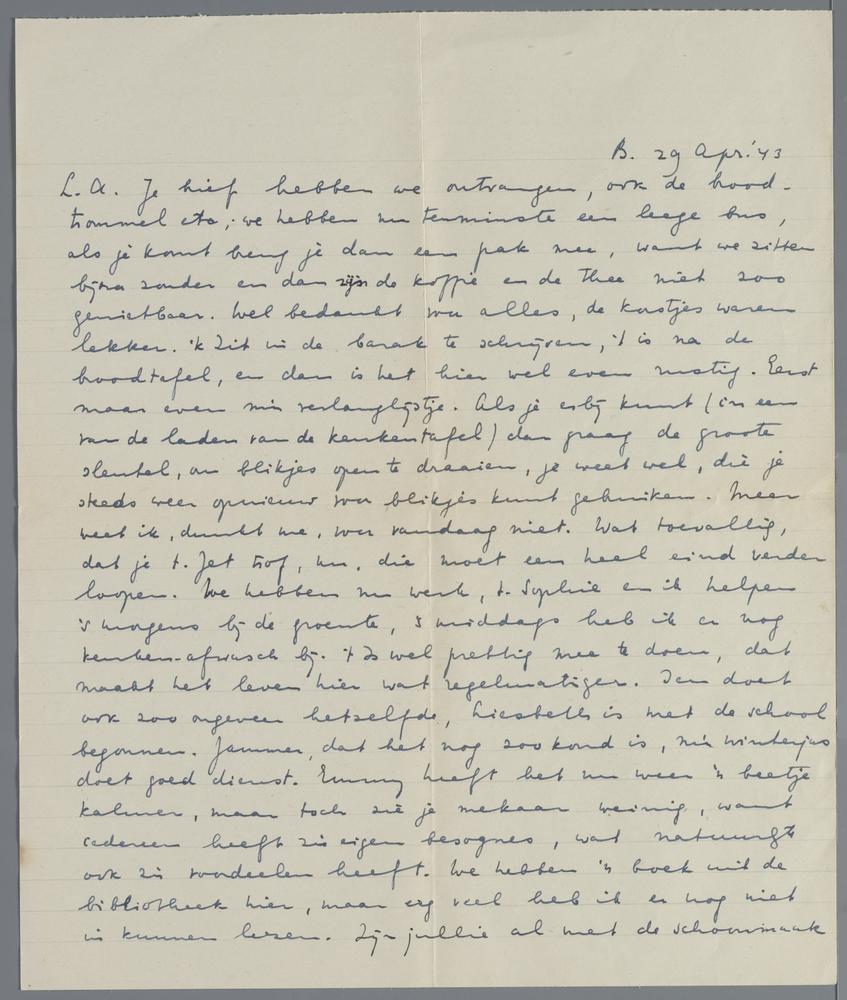 B. 29 Apr. '43
L.A. Je brief hebben we ontvangen, ook de brood-
trommel etc; we hebben nu tenminste een leege bus,
als je komt breng je dan een pak mee, want we zitten
bijna zonder en dan zijn de koffie en de thee niet zoo
genietbaar. Wel bedankt voor alles, de korstjes waren
lekker. 'k Zit in de barak te schrijven, 't is na de
broodtafel, en dan is het hier wel even rustig. Eerst
maar even mijn verlanglijstje. Als je erbij kunt (in een
van de laden van de keukentafel) dan graag de groote
sleutel, om blikjes open te draaien, je weet wel, die je
steeds weer opnieuw voor blikjes kunt gebruiken. Meer
weet ik, dunkt me, voor vandaag niet. Wat toevallig,
dat je t. Jet trof, nu, die moet een heel eind verder
loopen. We hebben nu werk, t. Sophie en ik helpen
's morgens bij de groente, 's middags heb ik er nog
keuken-afwasch bij. 't Is wel prettig mee te doen, dat
maakt het leven hier wat regelmatiger. Ien doet
ook zoo ongeveer hetzelfde, Liesbeth is met de school
begonnen. Jammer, dat het nog zoo koud is, mijn winterjas
doet goed dienst. Emmy heeft het nu weer 'n beetje
kalmer, maar toch zie je mekaar weinig, want
iedereen heeft zijn eigen besognes, wat natuurlijk
ook zijn voordeelen heeft. We hebben 'n boek uit de
bibliotheek hier, maar erg veel heb ik er nog niet
in kunnen lezen. Zijn jullie al met de schoonmaak